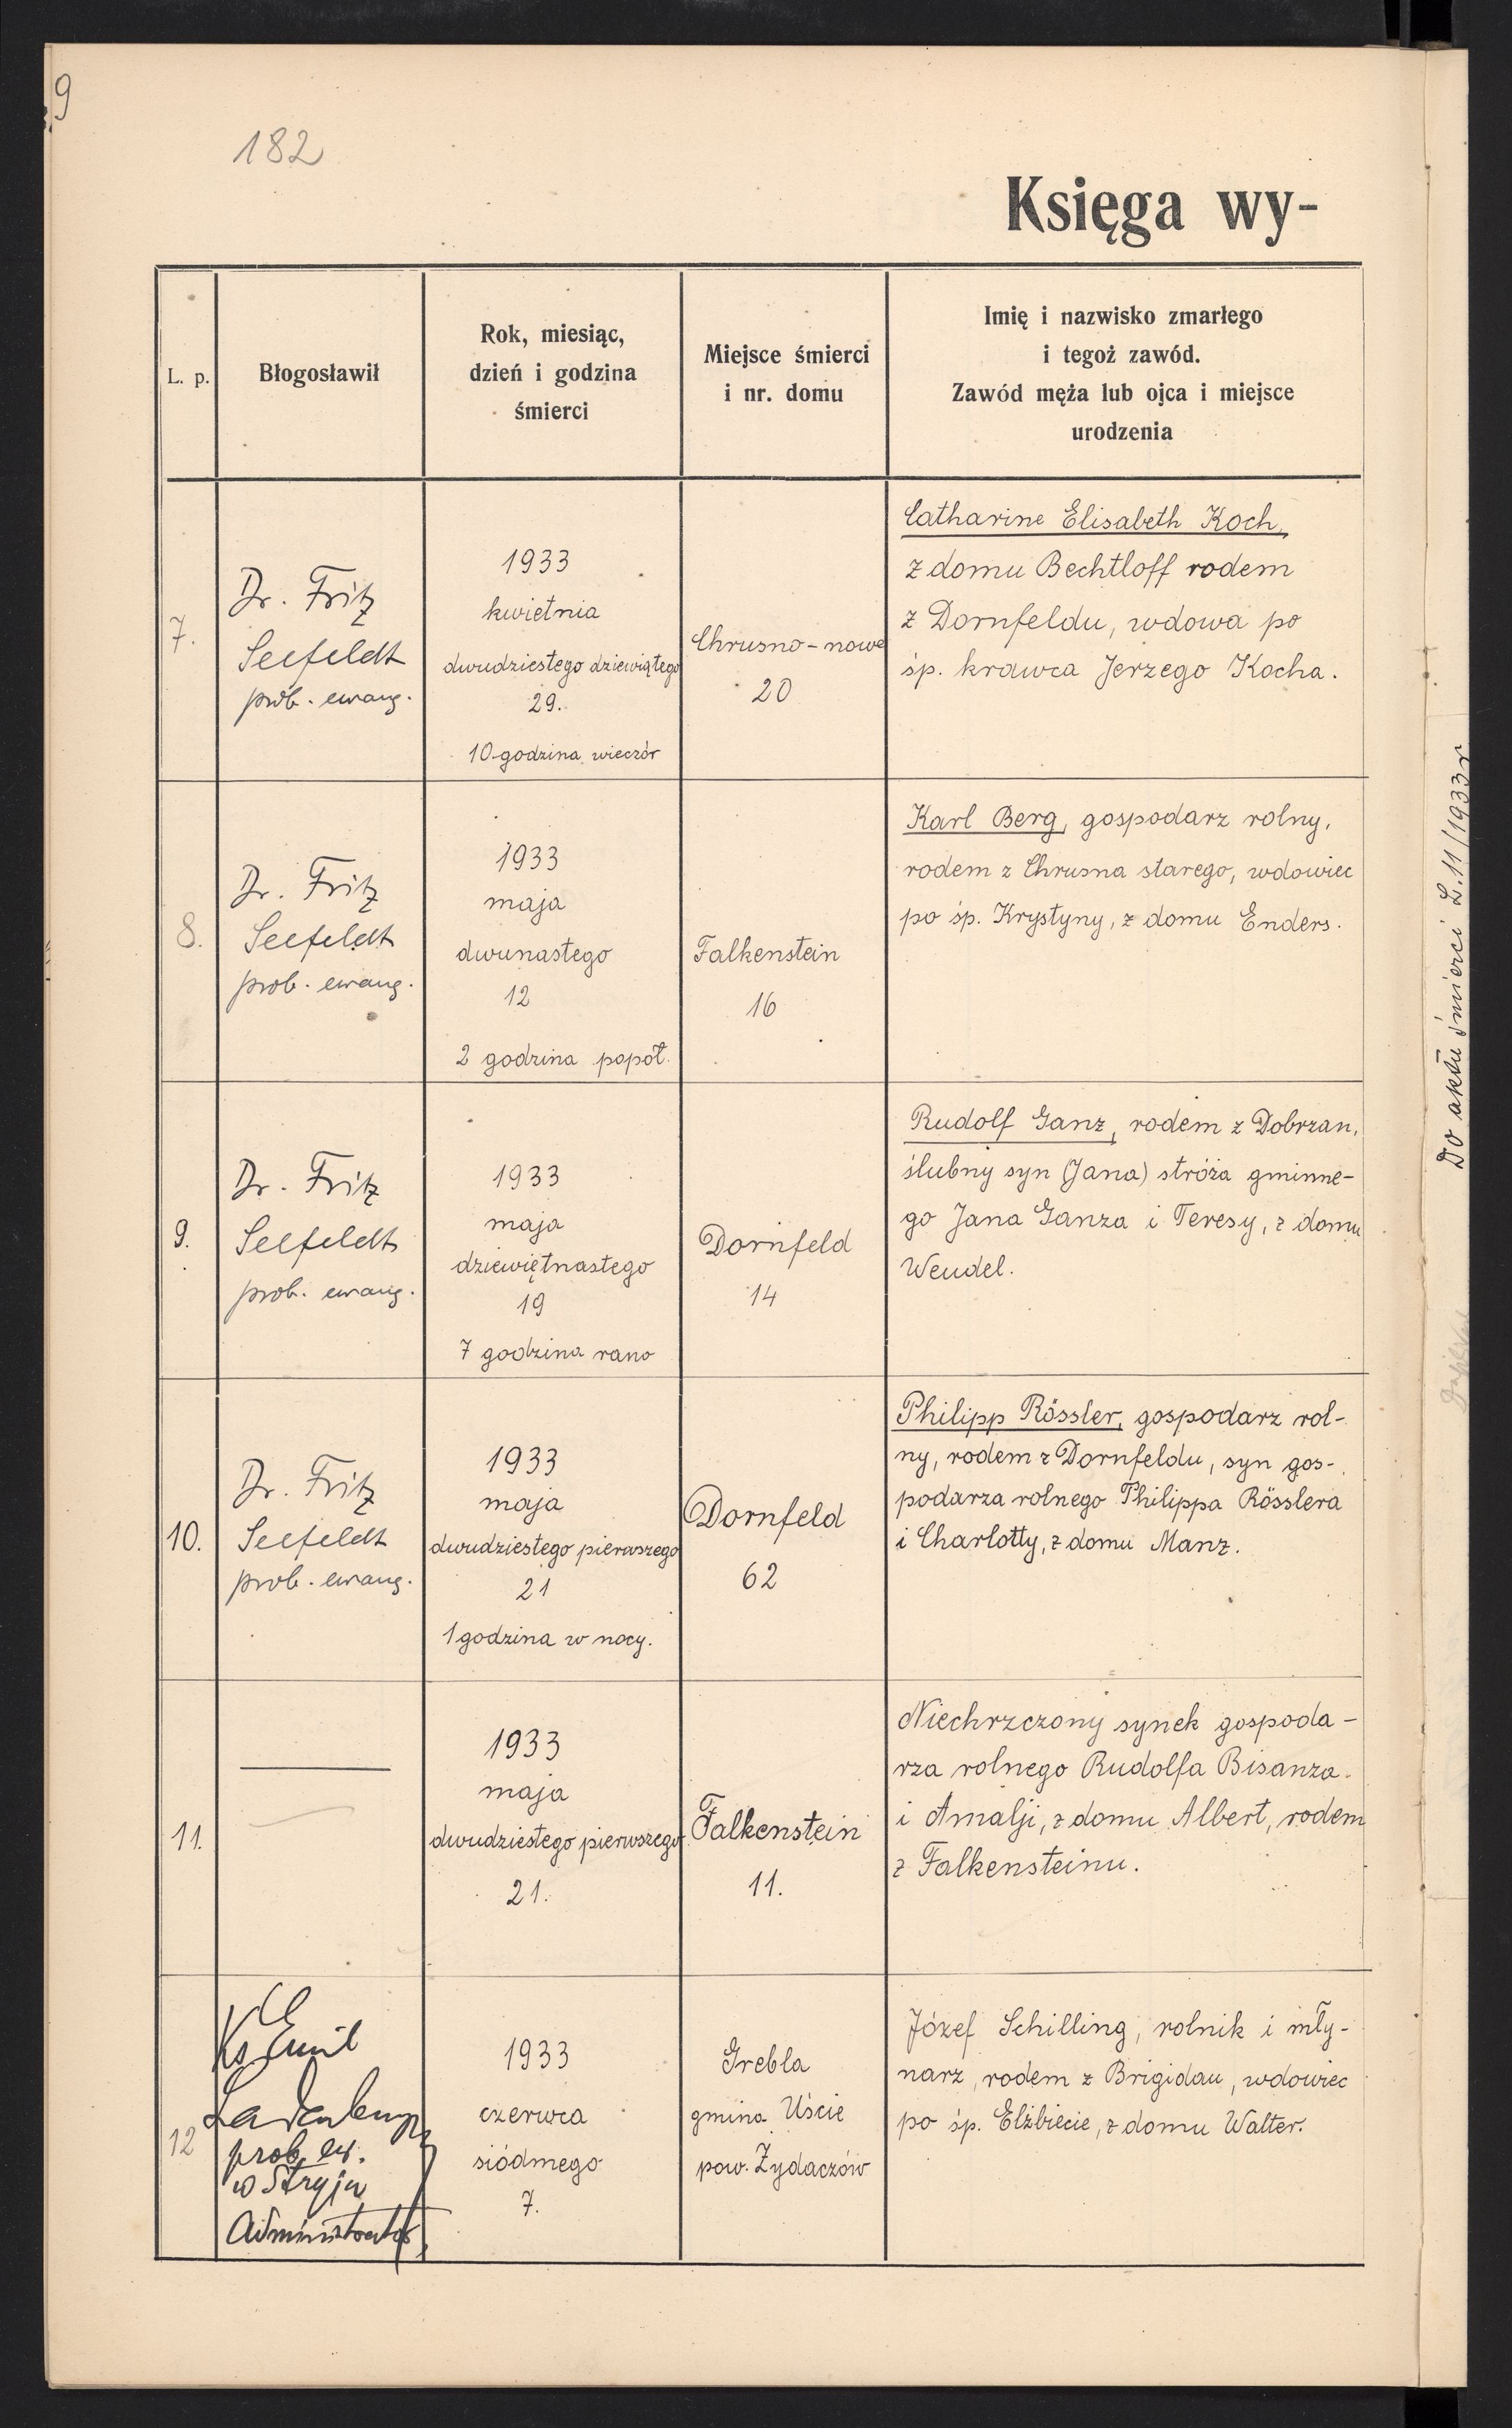 9
182
Księga wy-
L. p.
Błogosławił
Rok, miesiąc,
dzień i godzina
śmierci
Miejsce śmierci
i nr. domu
Imię i nazwisko zmarłego
i tegoż zawód.
Zawód męża lub ojca i miejsce
urodzenia
7.
Dr. Fritz
Seefeldt
prob. ewang.
1933
kwietnia
dwudziestego dziewiątego
29.
10 godzina wieczór
Chrusno-nowe
20
Catharine Elisabeth Koch,
z domu Bechtloff rodem
z Dornfeldu, wdowa po
śp. krawca Jerzego Kocha.
8.
Dr. Fritz
Seefeldt
prob. ewang.
1933
maja
dwunastego
12
2 godzina popoł.
Falkenstein
16
Karl Berg, gospodarz rolny,
rodem z Chrusna starego, wdowiec
po śp. Krystyny, z domu Enders.
9.
Dr. Fritz
Seefeldt
prob. ewang.
1933
maja
dziewiętnastego
19
7 godzina rano
Dornfeld
14
Rudolf Ganz, rodem z Dobrzan,
ślubny syn (Jana) stróża gminne-
go Jana Ganza i Teresy, z domu
Wendel.
10.
Dr. Fritz
Seefeldt
prob. ewang.
1933
maja
dwudziestego pierwszego
21
1 godzina w nocy.
Dornfeld
62
Philipp Rössler, gospodarz rol-
ny, rodem z Dornfeldu, syn gos-
podarza rolnego Philippa Rösslera
i Charlotty, z domu Manz.
11.
1933
maja
dwudziestego pierwszego
21.
Falkenstein
11.
Niechrzczony synek gospoda-
rza rolnego Rudolfa Bisanza
i Amalji, z domu Albert, rodem
z Falkensteinu.
12
Ks Emil
Ladenberger
prob. ew.
w Stryju
Administrator
1933
czerwca
siódmego
7.
Grebla
gmina Uście
pow. Żydaczów
Józef Schilling, rolnik i mły-
narz, rodem z Brigidau, wdowiec
po śp. Elżbiecie, z domu Walter.
Do aktu śmierci L.11/1933 r